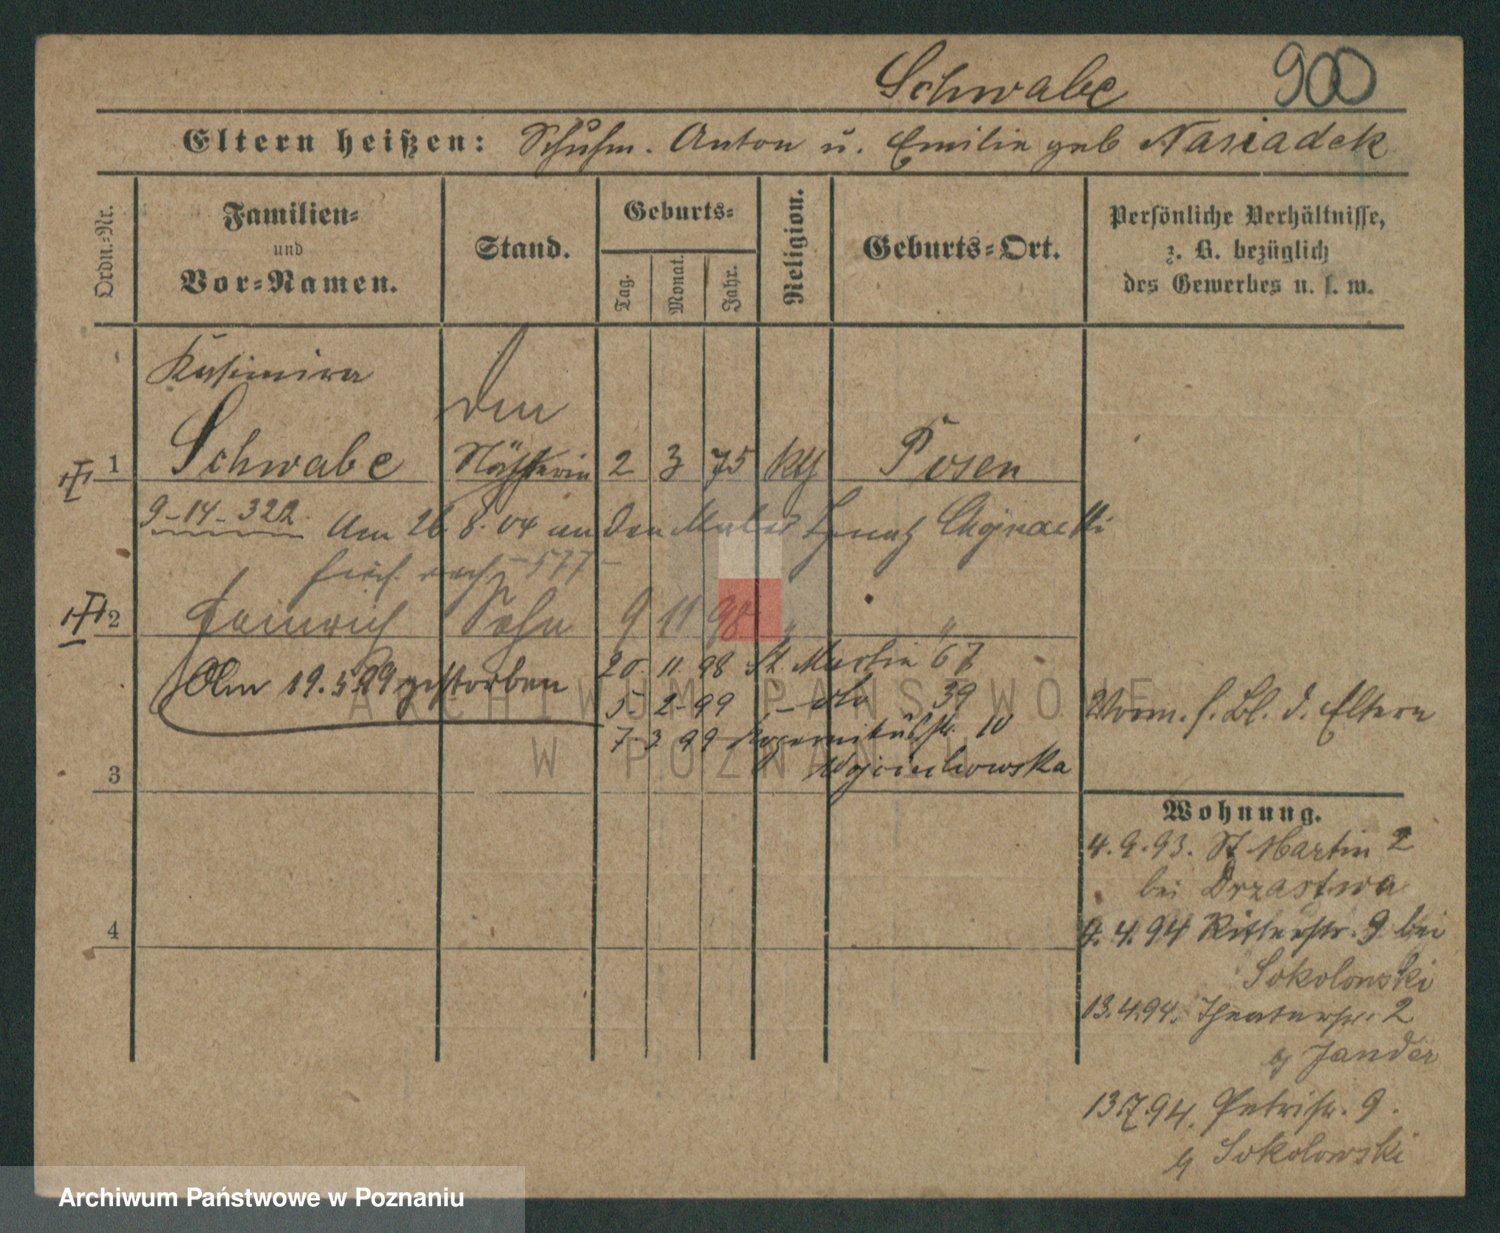 Schwabe 900
Eltern heißen: Schuhm. Anton u. Emilie geb Nasiadek
Ordn.-Nr.
Familien-
und
Vor-Namen.
Stand.
Geburts-
Tag.
Monat.
Jahr.
Religion.
Geburts-Ort.
Persönliche Verhältnisse,
z. B. bezüglich
des Gewerbes u. s. w.
Kasimira
1 Schwabe Nätherin 2 3 75 kth Posen
9-14-322 Am 26.8.04 an den Maler Ignatz Chojnacki
577
2 Heinrich Sohn 9 11 98 " "
Am 19.5.99 gestorben
20. 11. 98 St. Martin 67
5- 2-99 - do 39
7-3 99 10
Wojciechowska
Vorm. s. Bl. d. Eltern
3
Wohnung.
4.9.93. St Martin 2
bei Drzastwa
4
4.4.94 Ritterstr. 9 bei
Sokolowski
13.4.94. Theaterstr. 2
b/ Jander
13.7.94. Petristr. 9.
b/ Sokolowski
ARCHIWUM PAŃSTWOWE
W POZNANIU
Archiwum Państwowe w Poznaniu